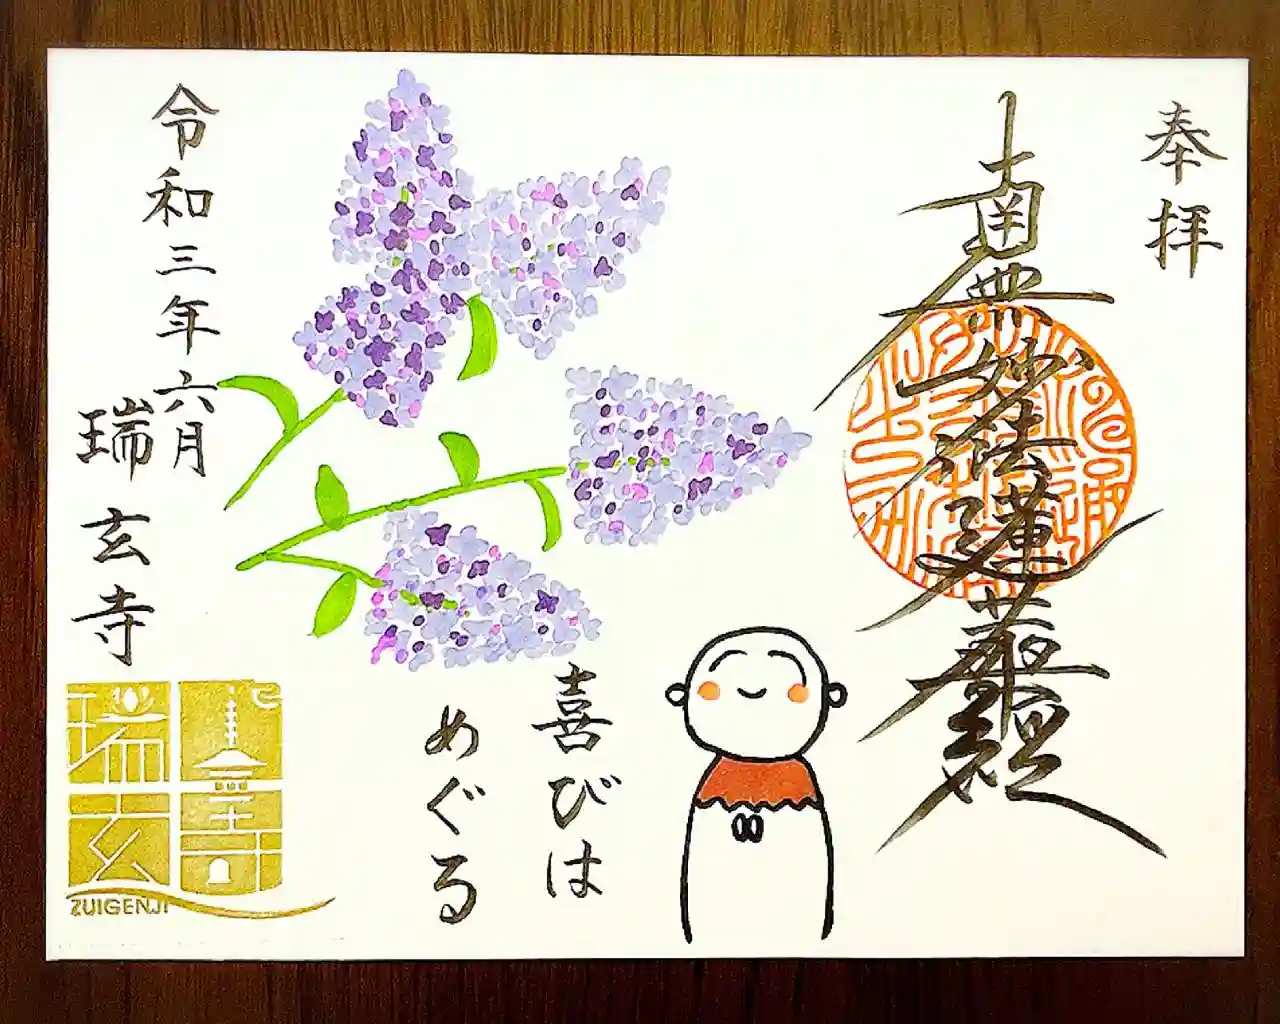 奉拝
南無妙法蓮華経
喜びは
めぐる
令和三年六月
瑞玄寺
瑞玄寺
ZUIGENJI